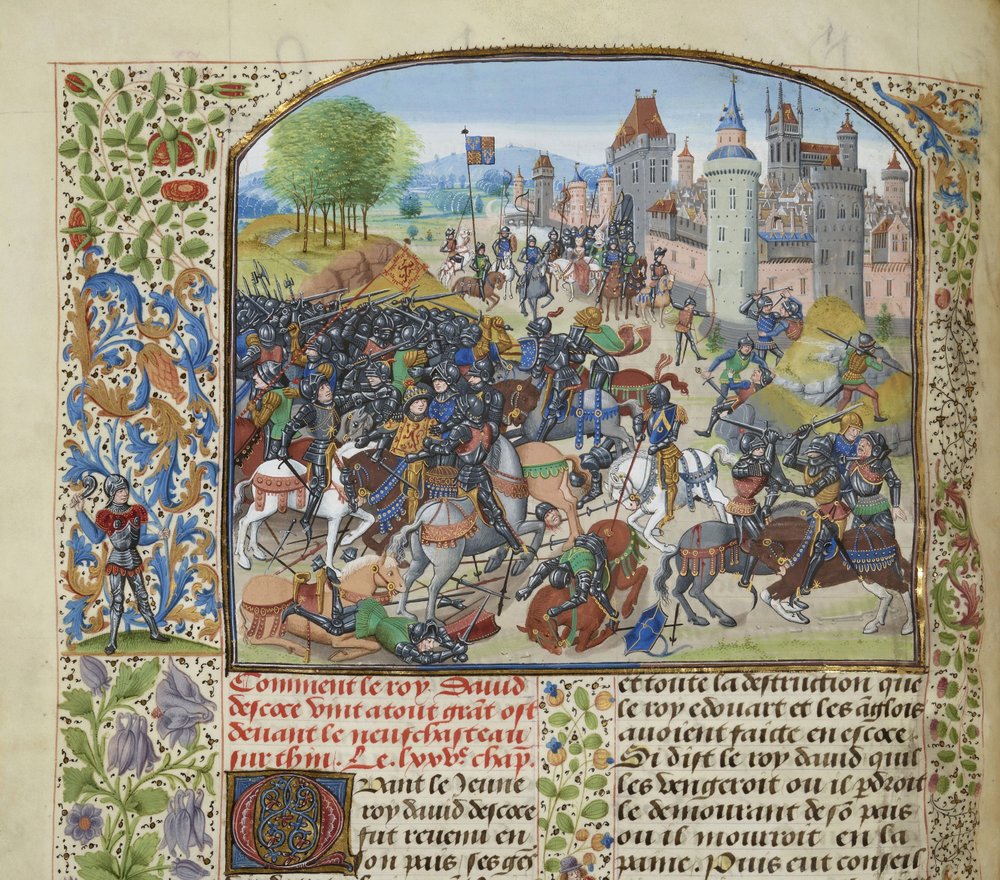 Comment le roy David
descoce vint a tout grāt ost
devant le neufchasteau
sur thin. Le. lxxve chap̄.
Quant le Jeune
roy david descoce
fut revenu en
son pais / ses gēs
et toute la destruction que
le roy edouart et les āglois
avoient faicte en escoce
Si dist le roy david quil
les vengeroit ou il p̄droit
le demourant de sō pais
ou il mourroit en la
paine. Puis eut conseil